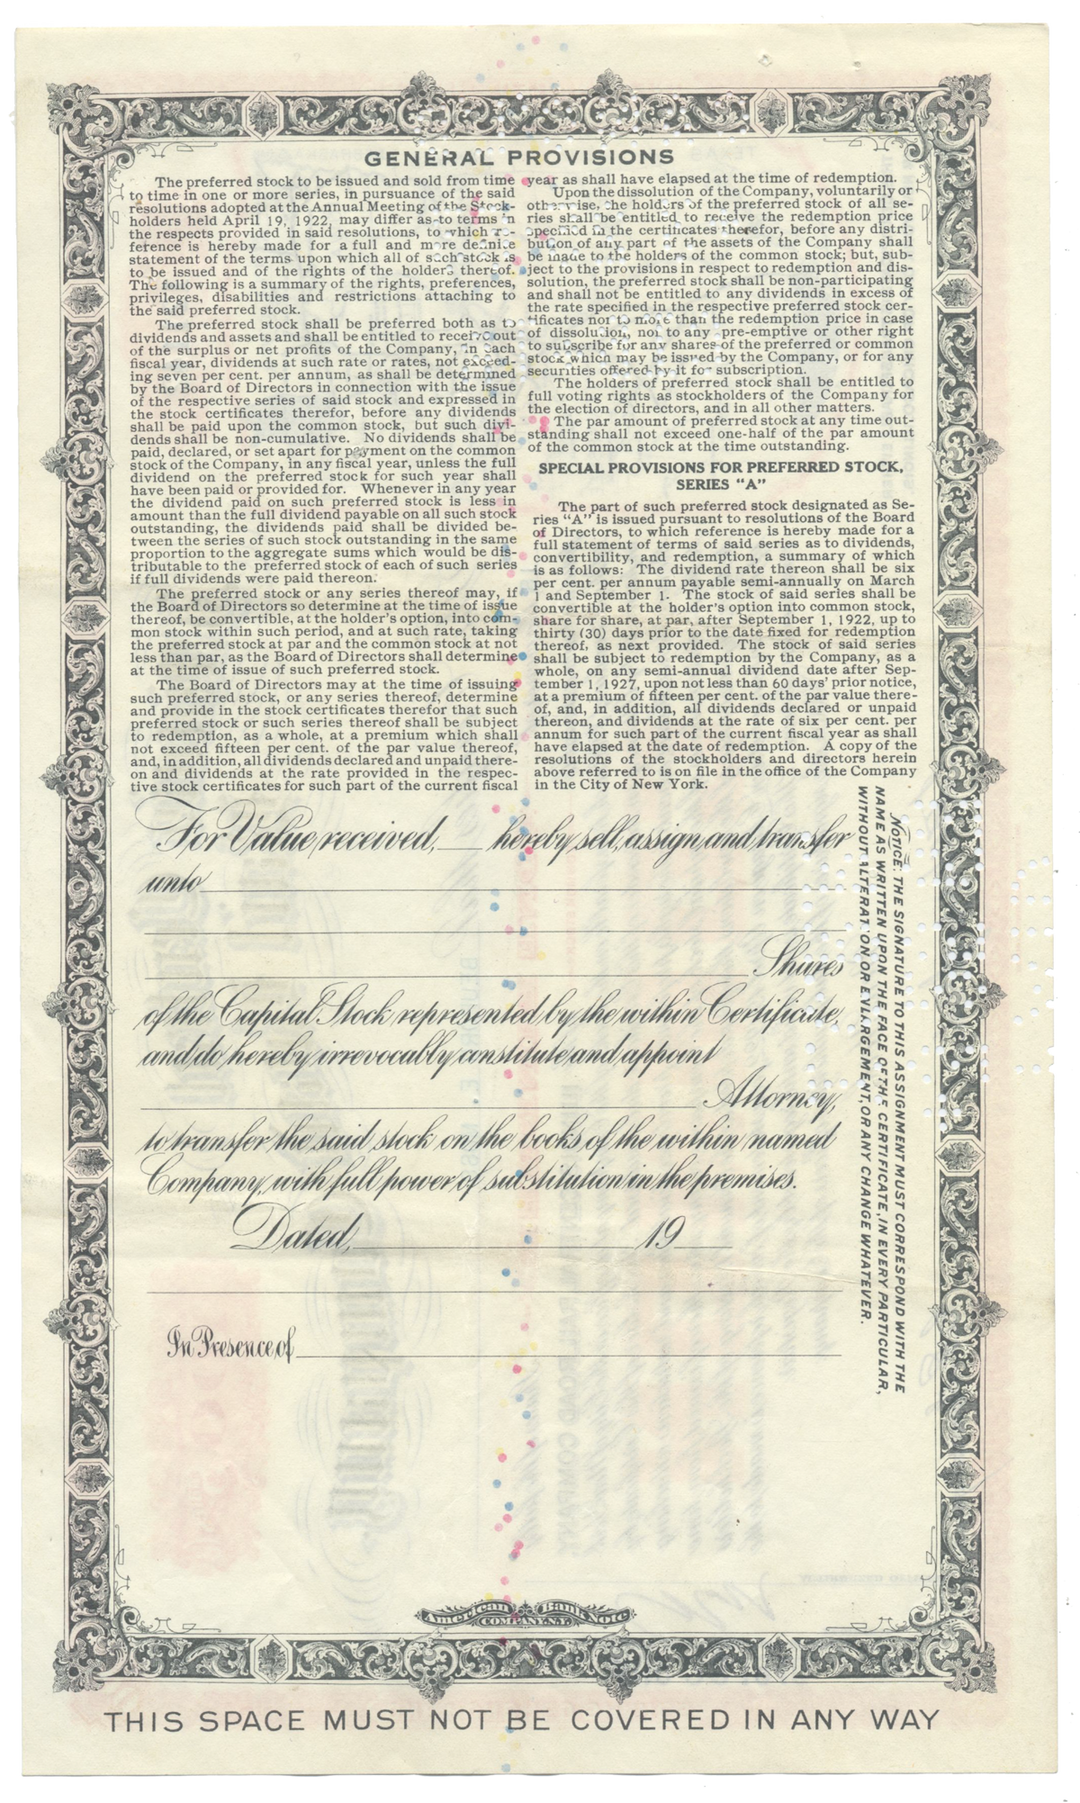 GENERAL PROVISIONS
The preferred stock to be issued and sold from time
to time in one or more series, in pursuance of the said
resolutions adopted at the Annual Meeting of the Stock-
holders held April 19, 1922, may differ as to terms in
the respects provided in said resolutions, to which re-
ference is hereby made for a full and more definite
statement of the terms upon which all of such stock is
to be issued and of the rights of the holders thereof.
The following is a summary of the rights, preferences,
privileges, disabilities and restrictions attaching to
the said preferred stock.
The preferred stock shall be preferred both as to
dividends and assets and shall be entitled to receive out
of the surplus or net profits of the Company, in each
fiscal year, dividends at such rate or rates, not exceed-
ing seven per cent. per annum, as shall be determined
by the Board of Directors in connection with the issue
of the respective series of said stock and expressed in
the stock certificates therefor, before any dividends
shall be paid upon the common stock, but such divi-
dends shall be non-cumulative. No dividends shall be
paid, declared, or set apart for payment on the common
stock of the Company, in any fiscal year, unless the full
dividend on the preferred stock for such year shall
have been paid or provided for. Whenever in any year
the dividend paid on such preferred stock is less in
amount than the full dividend payable on all such stock
outstanding, the dividends paid shall be divided be-
tween the series of such stock outstanding in the same
proportion to the aggregate sums which would be dis-
tributable to the preferred stock of each of such series
if full dividends were paid thereon.
The preferred stock or any series thereof may, if
the Board of Directors so determine at the time of issue
thereof, be convertible, at the holder's option, into com-
mon stock within such period, and at such rate, taking
the preferred stock at par and the common stock at not
less than par, as the Board of Directors shall determine
at the time of issue of such preferred stock.
The Board of Directors may at the time of issuing
such preferred stock, or any series thereof, determine
and provide in the stock certificates therefor that such
preferred stock or such series thereof shall be subject
to redemption, as a whole, at a premium which shall
not exceed fifteen per cent. of the par value thereof,
and, in addition, all dividends declared and unpaid there-
on and dividends at the rate provided in the respec-
tive stock certificates for such part of the current fiscal
year as shall have elapsed at the time of redemption.
Upon the dissolution of the Company, voluntarily or
otherwise, the holders of the preferred stock of all se-
ries shall be entitled to receive the redemption price
specified in the certificates therefor, before any distri-
bution of any part of the assets of the Company shall
be made to the holders of the common stock; but, sub-
ject to the provisions in respect to redemption and dis-
solution, the preferred stock shall be non-participating
and shall not be entitled to any dividends in excess of
the rate specified in the respective preferred stock cer-
tificates nor to more than the redemption price in case
of dissolution, nor to any pre-emptive or other right
to subscribe for any shares of the preferred or common
stock which may be issued by the Company, or for any
securities offered by it for subscription.
The holders of preferred stock shall be entitled to
full voting rights as stockholders of the Company for
the election of directors, and in all other matters.
The par amount of preferred stock at any time out-
standing shall not exceed one-half of the par amount
of the common stock at the time outstanding.
SPECIAL PROVISIONS FOR PREFERRED STOCK,
SERIES "A"
The part of such preferred stock designated as Se-
ries "A" is issued pursuant to resolutions of the Board
of Directors, to which reference is hereby made for a
full statement of terms of said series as to dividends,
convertibility, and redemption, a summary of which
is as follows: The dividend rate thereon shall be six
per cent. per annum payable semi-annually on March
1 and September 1. The stock of said series shall be
convertible at the holder's option into common stock,
share for share, at par, after September 1, 1922, up to
thirty (30) days prior to the date fixed for redemption
thereof, as next provided. The stock of said series
shall be subject to redemption by the Company, as a
whole, on any semi-annual dividend date after Sep-
tember 1, 1927, upon not less than 60 days' prior notice,
at a premium of fifteen per cent. of the par value there-
of, and, in addition, all dividends declared or unpaid
thereon, and dividends at the rate of six per cent. per
annum for such part of the current fiscal year as shall
have elapsed at the date of redemption. A copy of the
resolutions of the stockholders and directors herein
above referred to is on file in the office of the Company
in the City of New York.
For Value received, ___ hereby sell, assign and transfer
unto
Shares
of the Capital Stock represented by the within Certificate,
and do hereby irrevocably constitute and appoint
Attorney,
to transfer the said stock on the books of the within named
Company, with full power of substitution in the premises.
Dated, 19
In Presence of
NOTICE: THE SIGNATURE TO THIS ASSIGNMENT MUST CORRESPOND WITH THE
NAME AS WRITTEN UPON THE FACE OF THE CERTIFICATE, IN EVERY PARTICULAR,
WITHOUT ALTERATION OR ENLARGEMENT, OR ANY CHANGE WHATEVER.
American Bank Note
COMPANY, N.Y.
THIS SPACE MUST NOT BE COVERED IN ANY WAY